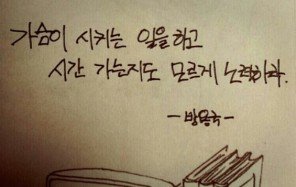 가슴이 시키는 일을 하고
시간 가는지도 모르게 노력하라.
- 방용국 -